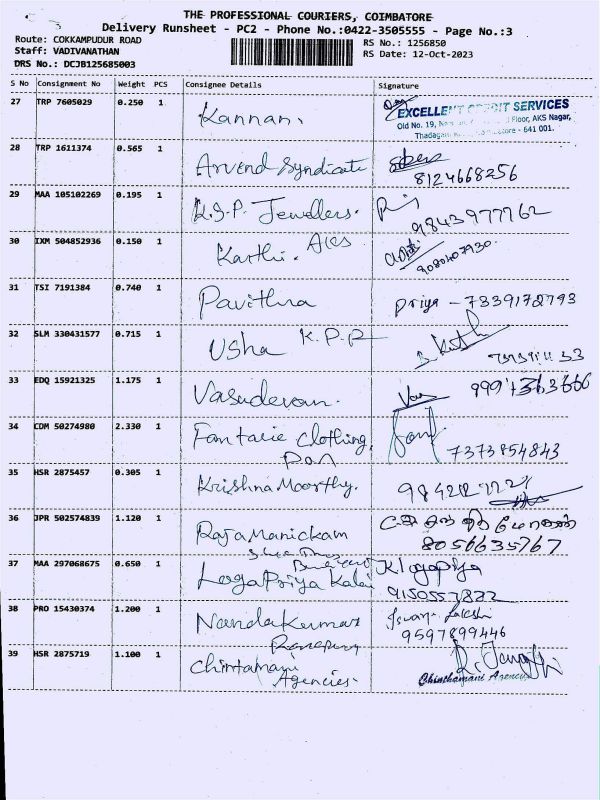 THE PROFESSIONAL COURIERS, COIMBATORE
Delivery Runsheet - PC2 - Phone No.:0422-3505555 - Page No.:3
Route: COKKAMPUDUR ROAD
RS No.: 1256850
Staff: VADIVANATHAN
RS Date: 12-Oct-2023
DRS No.: DCJB125685003
S No Consignment No Weight PCS Consignee Details Signature
27 TRP 7605029 0.250 1 Kannan.
EXCELLENT CREDIT SERVICES
Old No. 19, Floor, AKS Nagar,
Thadagam - 641 001.
28 TRP 1611374 0.565 1 Arvend Syndicate
8124668256
29 MAA 105102269 0.195 1 K.S.P. Jewellers.
9843977762
30 IXM 504852936 0.150 1 Karthi.
9080407930
31 TSI 7191384 0.740 1 Pavithra Priya - 7339172793
32 SLM 330431577 0.715 1 Usha K.P.R
33 EDQ 15921325 1.175 1 Vasudevan.
34 CDM 50274980 2.330 1 Fantasie Clothing
7373854843
35 HSR 2875457 0.305 1 Krishna Moorthy.
36 JPR 502574839 1.120 1 Raja Manickam
8056635767
37 MAA 297068675 0.650 1 Loga Priya Kalai K logapriya
9150557822
38 PRO 15430374 1.200 1 Nanda Kumar
9597899446
39 HSR 2875719 1.100 1 Chintamani
Agencies.
Chinthamani Agency